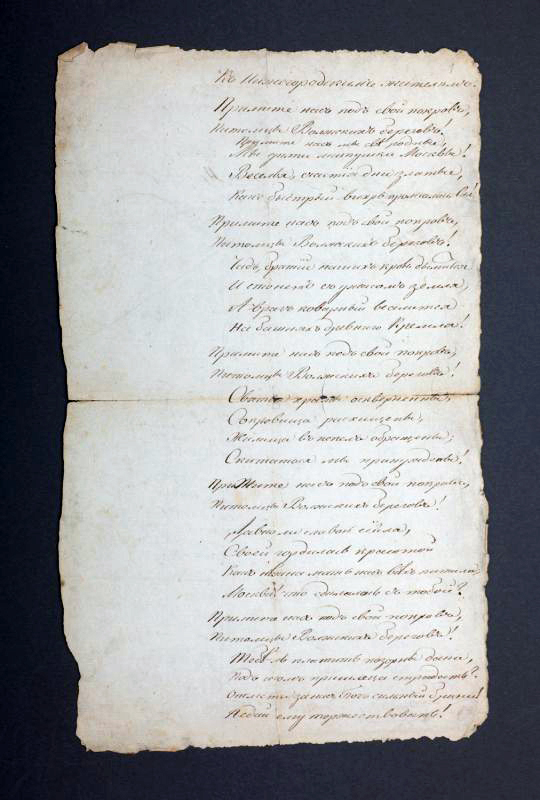 Къ Нижегородскимъ жителямъ.
Примите насъ подъ свой покровъ,
Питомцы Волжскихъ береговъ!
Примите насъ мы всѣ родные,
Мы дѣти матушки Москвы!
Веселья, счастья дни златые,
Какъ быстрый вихрь промчались вы!
Примите насъ подъ свой покровъ,
Питомцы Волжскихъ береговъ!
Чадъ, братій нашихъ кровь дымится
И стонетъ съ ужасомъ земля
А врагъ коварный веселится
На башняхъ древняго Кремля!
Примите насъ подъ свой покровъ,
Питомцы Волжскихъ береговъ!
Святые храмы осквернены,
Сокровища расхищены,
Жилища въ пепелъ обращены,
Скитаться мы принуждены!
Примите насъ подъ свой покровъ,
Питомцы Волжскихъ береговъ!
Давно ли славой
Своей гордилась красотой
Какъ нѣжна мать насъ всѣхъ питала,
Москва! что сдѣлалось съ тобой?
Примите насъ подъ свой покровъ,
Питомцы Волжскихъ береговъ!
Тебѣ ль платить позорны дани,
Подъ игомъ пришлеца стонать?
Отмсти за насъ Богъ сильный брани!
Не дай ему торжествовать!